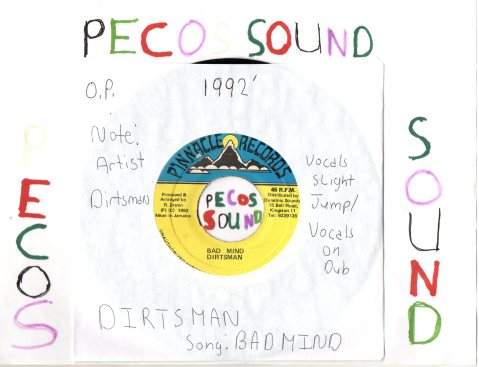 PECOS SOUND
O.P.
1992'
Note:
Artist
Dirtsman
PINNACLE RECORDS
Produced &
Arranged by
R. Brown
(P) (C) 1992
Made in Jamaica
PECOS
SOUND
45 R.P.M.
Distributed by
Dynamic Sounds
15 Bell Road,
Kingston 11
Tel: 9239138
BAD MIND
DIRTSMAN
Vocals
Slight
Jump/
Vocals
on
Dub
PECOS
SOUND
DIRTSMAN
Song: BAD MIND